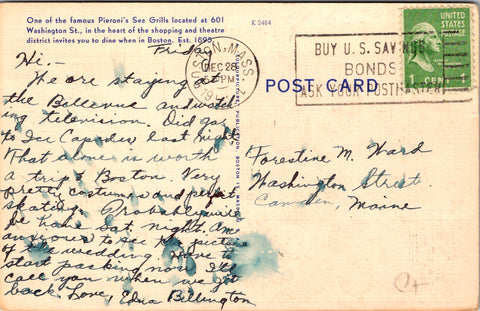 One of the famous Pieroni's Sea Grills located at 601
Washington St., in the heart of the shopping and theatre
district invites you to dine when in Boston. Est. 1895
K 2464
Friday
Hi. -
We are staying at
the Bellevue and watch
ing television. Did go
to Ice Capades last night
That alone is worth
a trip to Boston. Very
pretty costumes and perfect
skating. Probably will
be home Sat. night. Am
anxious to see the picture
of the wedding. Have to
start packing now I'll
call you when we get
back. Love, Edna Billington
BOSTON, MASS.
DEC 28
PM
BUY U.S. SAVINGS
BONDS
ASK YOUR POSTMASTER
UNITED
STATES
POSTAGE
1 CENT 1
POST CARD
Forestine M. Ward
Washington Street.
Camden, Maine